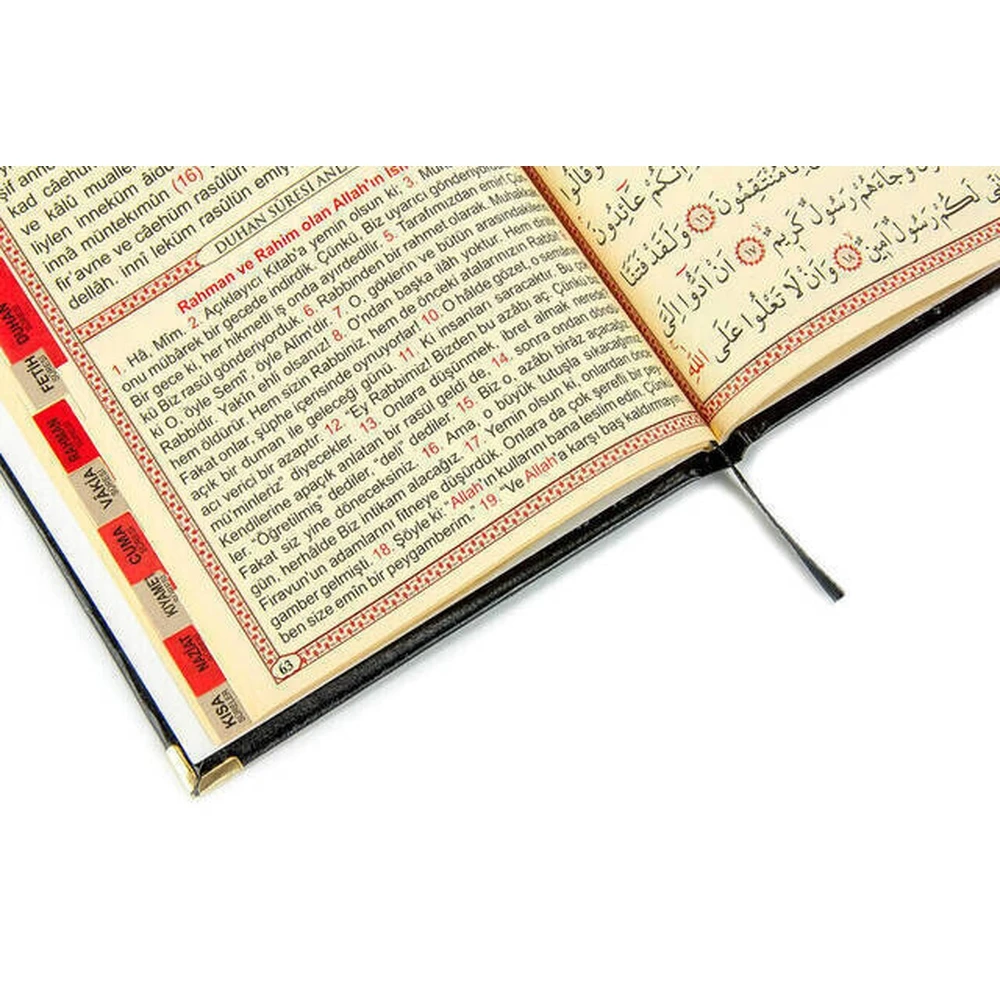 kad câehüm
ve kâlû mualle
liylen inneküm âidû
innâ müntekimûn (16)
fir'avne ve câehüm rasûlün
dellâh. innî leküm rasûlün emiy
DUHAN SÛRESİ ANL
Rahman ve Rahim olan Allah'ın İsm
1. Hâ, Mîm. 2. Açıklayıcı Kitab'a yemin olsun ki; 3. Mu
onu mübârek bir gecede indirdik. Çünkü, Biz uyarıcı gönderiyorduk
Bir gece ki, her hikmetli iş onda ayırdedilir. 5. Tarafımızdan emir! Çün
kü Biz rasûl gönderiyorduk. 6. Rabbinden bir rahmet olarak. Muhakkak
ki O, öyle Semî', öyle Alîm'dir. 7. O, göklerin ve bütün arasındakilerin
Rabbidir. Yakîn ehli olsanız! 8. O'ndan başka ilâh yoktur. Hem diril
hem öldürür. Hem sizin Rabbiniz hem de önceki atalarınızın Rabbi!
Fakat onlar, şüphe içerisinde oynuyorlar! 10. O hâlde gözet, o semânın
açık bir duman ile geleceği günü. 11. Ki insanları saracaktır. Bu çok
acı verici bir azaptır. 12. "Ey Rabbimiz! Bizden bu azabı aç. Çünkü
mü'minleriz" diyecekler. 13. Onlara düşünmek, ibret almak nerede!
Kendilerine apaçık anlatan bir rasûl geldi de, 14. sonra ondan döndü
ler. "Öğretilmiş" dediler, "deli" dediler. 15. Biz o, azâbı biraz açacağız,
Fakat siz yine döneceksiniz. 16. Ama, o büyük tutuşla sıkacağımız
gün, herhâlde Biz intikam alacağız. 17. Yemin olsun ki, onlardan önce
Firavun'un adamlarını fitneye düşürdük. Onlara da çok şerefli bir pey
gamber gelmişti. 18. Şöyle ki: "Allah'ın kullarını bana teslim edin. Çünkü
ben size emîn bir peygamberim." 19. "Ve Allah'a karşı baş kaldırmayın
63
DUHAN
FETİH SÛRESİ
RAHMAN SÛRESİ
VÂKIA SÛRESİ
CUMA SÛRESİ
KIYAME SÛRESİ
NAZİAT
KISA SÛRELER
إِنَّكُمْ عَائِدُونَ
إِنَّا مُنْتَقِمُونَ ﴿١٦﴾ وَلَقَدْ فَتَنَّا
وَجَاءَهُمْ رَسُولٌ كَرِيمٌ ﴿١٧﴾ أَنْ أَدُّوا إِلَيَّ
لَكُمْ رَسُولٌ أَمِينٌ ﴿١٨﴾ وَأَنْ لَا تَعْلُوا عَلَى
اللّٰهِ